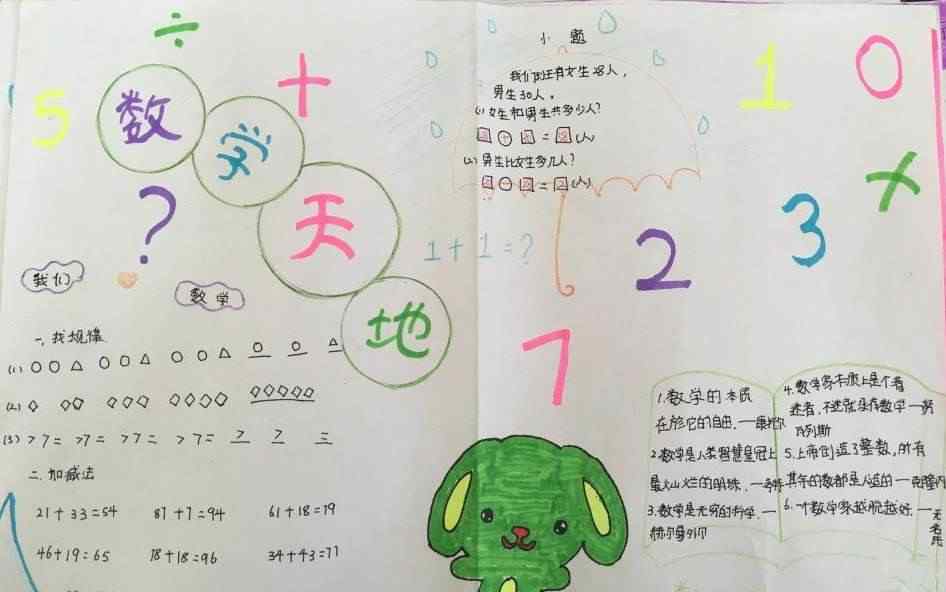 ÷
+
5
数学天地
?
我们
数学
一、找规律
(1) ○○△ ○○△ ○○△ ○ ○ △
(2) ◇ ◇◇ ◇◇◇ ◇◇◇◇ ◇◇◇◇◇
(3) >7= >7= >7= >7= > 7 =
二、加减法
21+33=54 87+7=94 61+18=79
46+19=65 78+18=96 34+43=77
小 题
我们班有女生28人,
男生30人。
(1)女生和男生共多少人?
+ = (人)
(2)男生比女生多几人?
○ = 2 (人)
1+1=?
1
0
×
2
3
7
1.数学的本质
在於它的自由.一康托尔
2.数学是人类智慧皇冠上
最灿烂的明珠.一
3.数学是无穷的科学.一
赫尔曼外尔
4.数学家本质上是个着
迷者,不迷就没有数学一努
瓦列斯
5.上帝创造了整数,所有
其余的数都是人造的一克隆内
6.一个数学家越脱越好 一无名氏